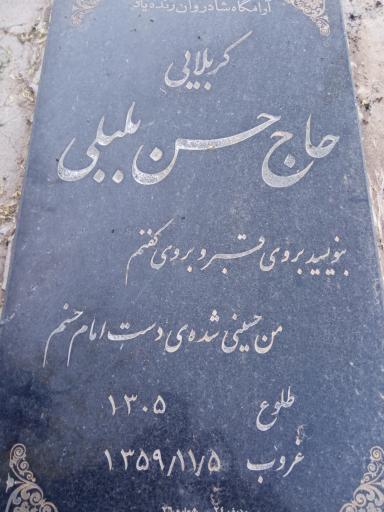 آرامگاه شادروان زنده یاد
کربلایی
حاج حسن بلبلی
بنویسید بروی قبر و بروی کفنم
من حسینی شده ی دست امام حسنم
طلوع ۱۳۰۵
غروب ۱۳۵۹/۱۱/۵